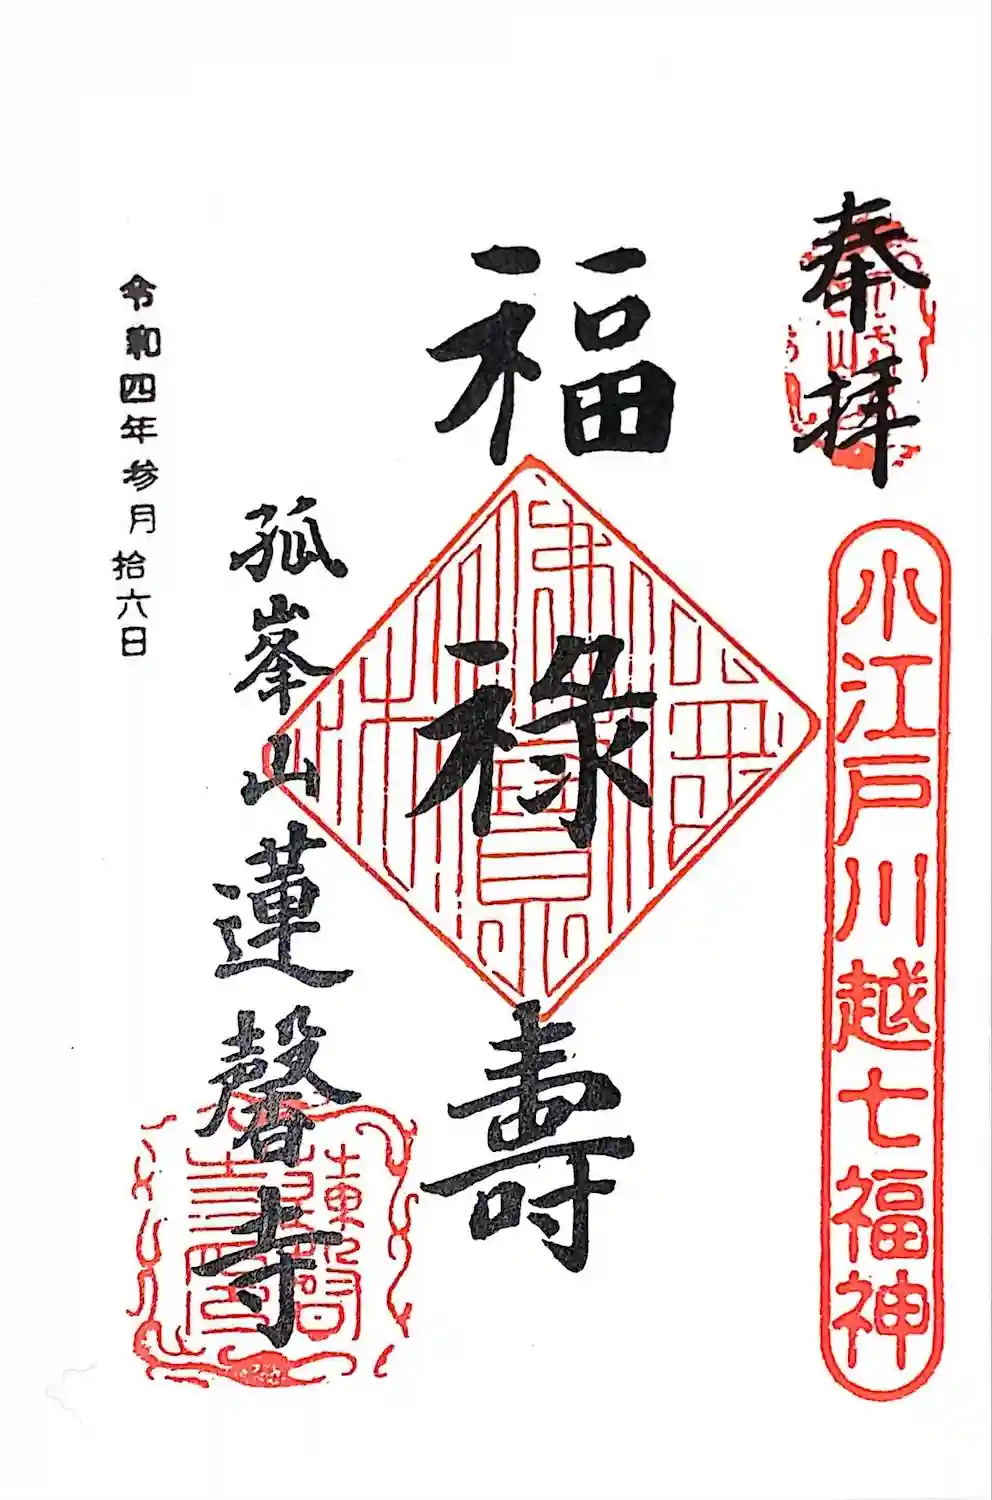 奉拝
小江戸川越七福神
福禄寿
孤峯山蓮馨寺
令和四年参月拾六日